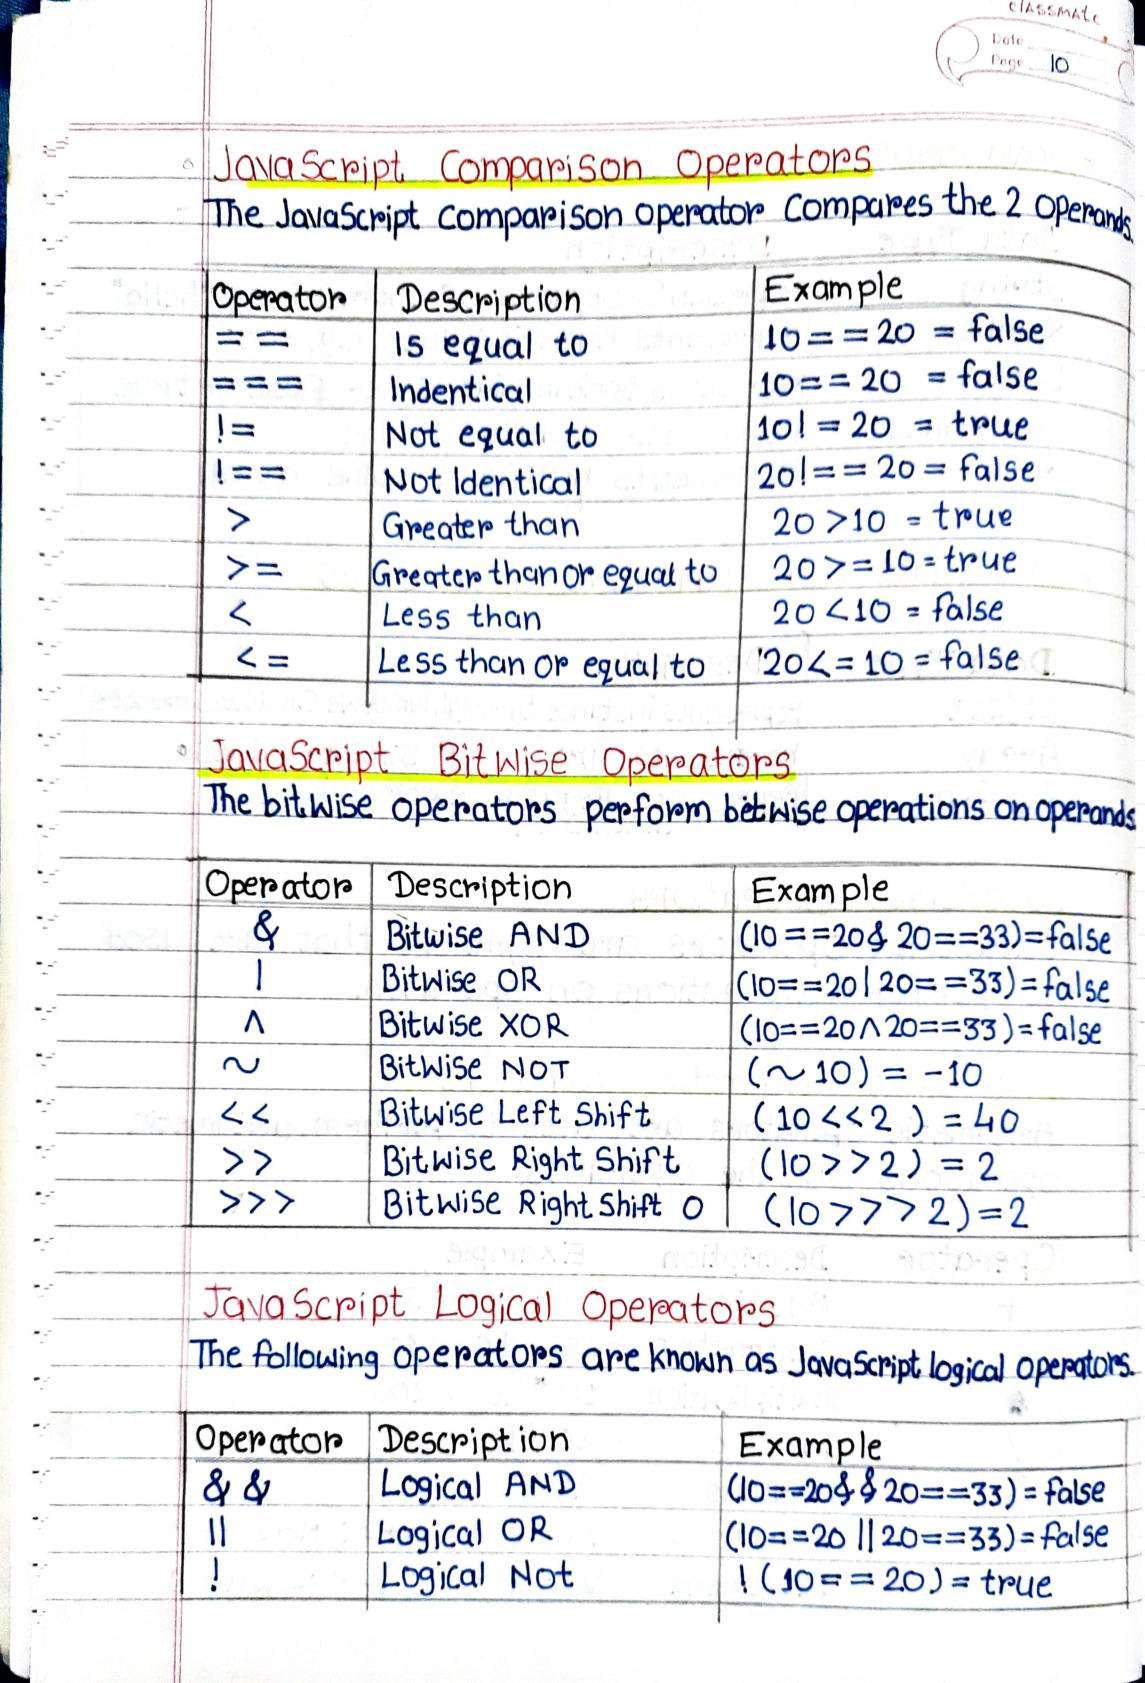 classmate
Date
Page 10
JavaScript Comparison Operators
The JavaScript comparison operator compares the 2 operands.
Operator Description Example
== Is equal to 10==20 = false
=== Indentical 10==20 = false
!= Not equal to 10!=20 = true
!== Not Identical 20!==20 = false
> Greater than 20>10 = true
>= Greater than or equal to 20>=10 = true
< Less than 20<10 = false
<= Less than or equal to 20<=10 = false
JavaScript Bitwise Operators
The bitwise operators perform bitwise operations on operands
Operator Description Example
& Bitwise AND (10==20& 20==33)=false
| Bitwise OR (10==20|20==33)=false
^ Bitwise XOR (10==20^20==33)=false
~ Bitwise NOT (~10) = -10
<< Bitwise Left Shift (10<<2) = 40
>> Bitwise Right Shift (10>>2) = 2
>>> Bitwise Right Shift 0 (10>>>2)=2
JavaScript Logical Operators
The following operators are known as JavaScript logical operators.
Operator Description Example
&& Logical AND (10==20&&20==33) = false
|| Logical OR (10==20||20==33)=false
! Logical Not !(10==20) = true